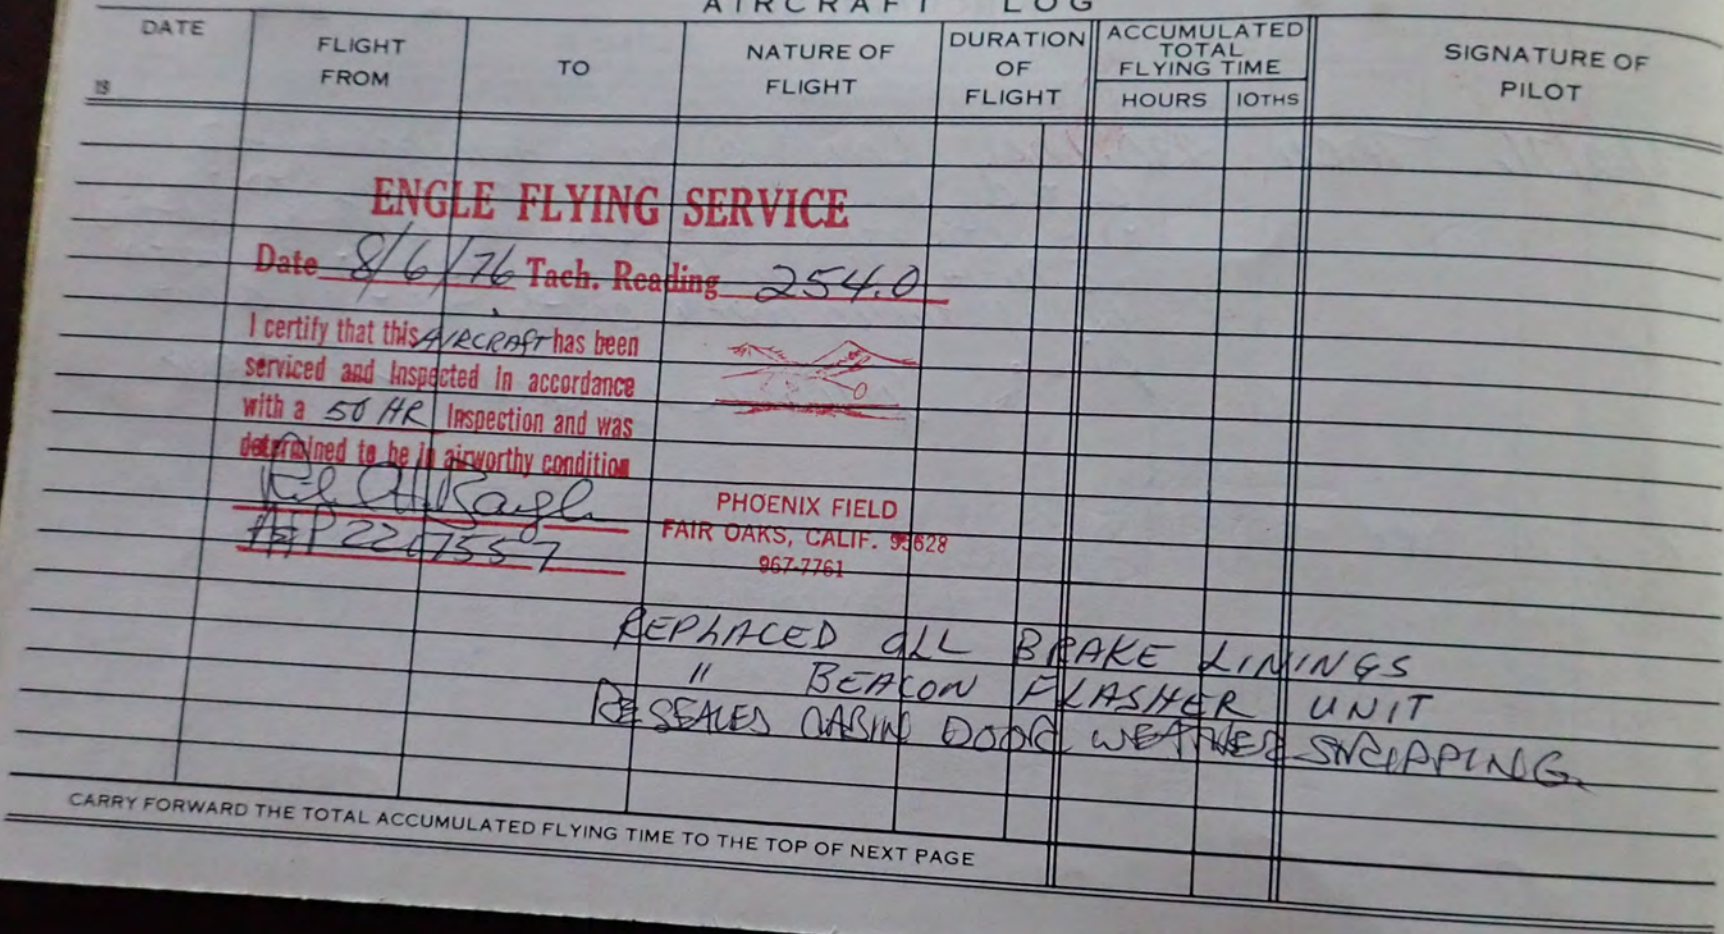 AIRCRAFT LOG
DATE
19
FLIGHT
FROM
TO
NATURE OF
FLIGHT
DURATION
OF
FLIGHT
ACCUMULATED
TOTAL
FLYING TIME
HOURS
10THS
SIGNATURE OF
PILOT
ENGLE FLYING SERVICE
Date 8/6/76 Tach. Reading 254.0
I certify that this AIRCRAFT has been
serviced and Inspected in accordance
with a 50 HR Inspection and was
determined to be in airworthy condition
PHOENIX FIELD
FAIR OAKS, CALIF. 95628
967-7761
REPLACED ALL BRAKE LININGS
" BEACON FLASHER UNIT
RESEALED CABIN DOOR WEATHER STRIPPING
CARRY FORWARD THE TOTAL ACCUMULATED FLYING TIME TO THE TOP OF NEXT PAGE